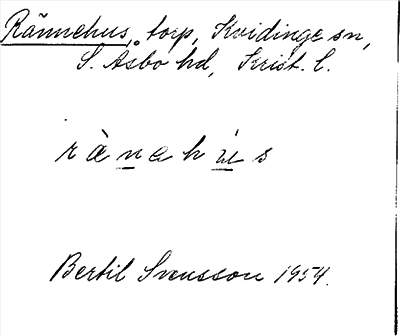 Rännehus, torp, Kvidinge sn,
S. Åsbo hd, Krist. l.
rànehús
Bertil Svensson 1954.